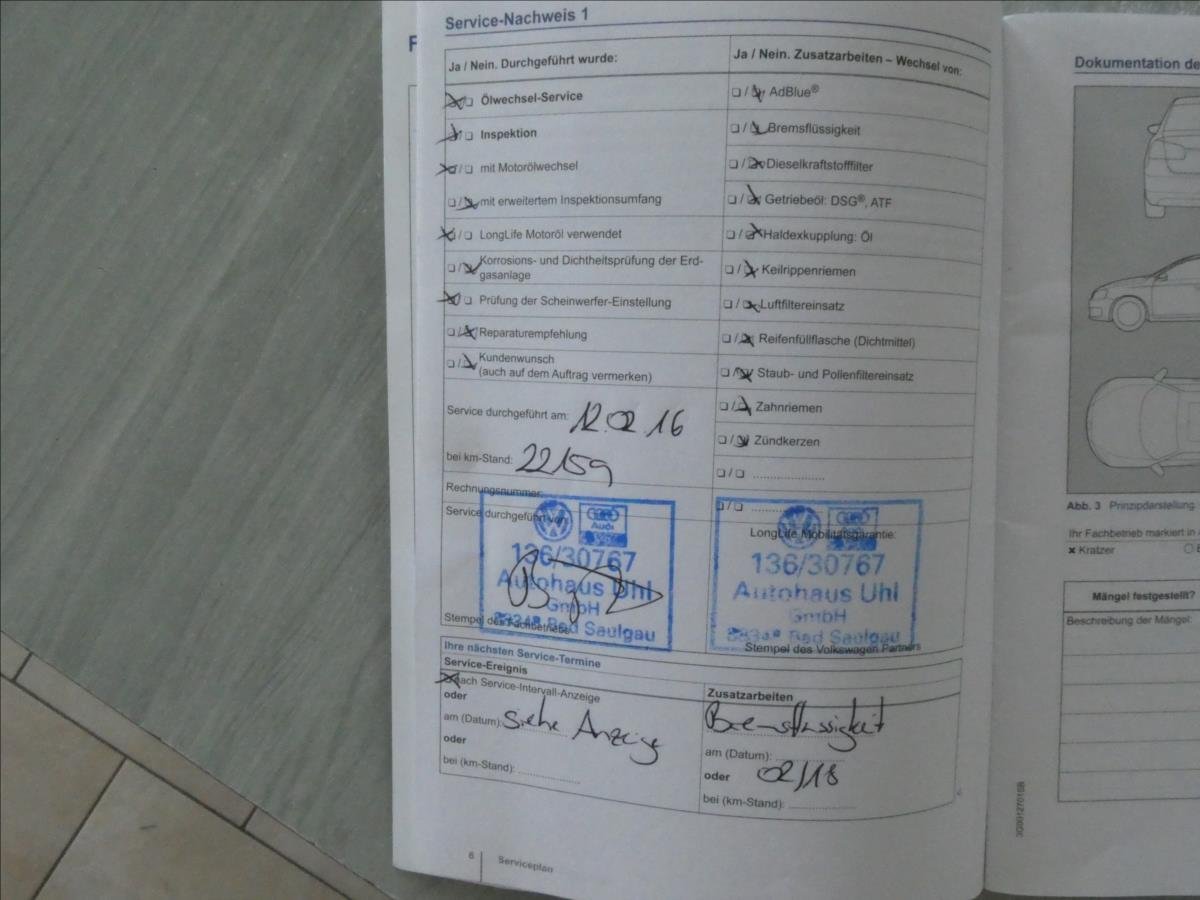 Service-Nachweis 1
Ja / Nein. Durchgeführt wurde:
Ölwechsel-Service
Inspektion
mit Motorölwechsel
mit erweitertem Inspektionsumfang
LongLife Motoröl verwendet
Korrosions- und Dichtheitsprüfung der Erd-
gasanlage
Prüfung der Scheinwerfer-Einstellung
Reparaturempfehlung
Kundenwunsch
(auch auf dem Auftrag vermerken)
Service durchgeführt am: 12.02.16
bei km-Stand: 22159
Rechnungsnummer:
Service durchgeführt von:
Audi
136/30767
Autohaus Uhl
GmbH
88348 Bad Saulgau
Stempel des Fachbetriebes
Ja / Nein. Zusatzarbeiten – Wechsel von:
AdBlue®
Bremsflüssigkeit
Dieselkraftstofffilter
Getriebeöl: DSG®, ATF
Haldexkupplung: Öl
Keilrippenriemen
Luftfiltereinsatz
Reifenfüllflasche (Dichtmittel)
Staub- und Pollenfiltereinsatz
Zahnriemen
Zündkerzen
LongLife Mobilitätsgarantie:
136/30767
Autohaus Uhl
GmbH
88348 Bad Saulgau
Stempel des Volkswagen Partners
Ihre nächsten Service-Termine
Service-Ereignis
nach Service-Intervall-Anzeige
oder
am (Datum): siehe Anzeige
oder
bei (km-Stand):
Zusatzarbeiten
Bremsflüssigkeit
am (Datum):
oder 02/18
bei (km-Stand):
6 Serviceplan
F
Dokumentation de
Abb. 3 Prinzipdarstellung
Ihr Fachbetrieb markiert in
x Kratzer
Mängel festgestellt?
Beschreibung der Mängel: